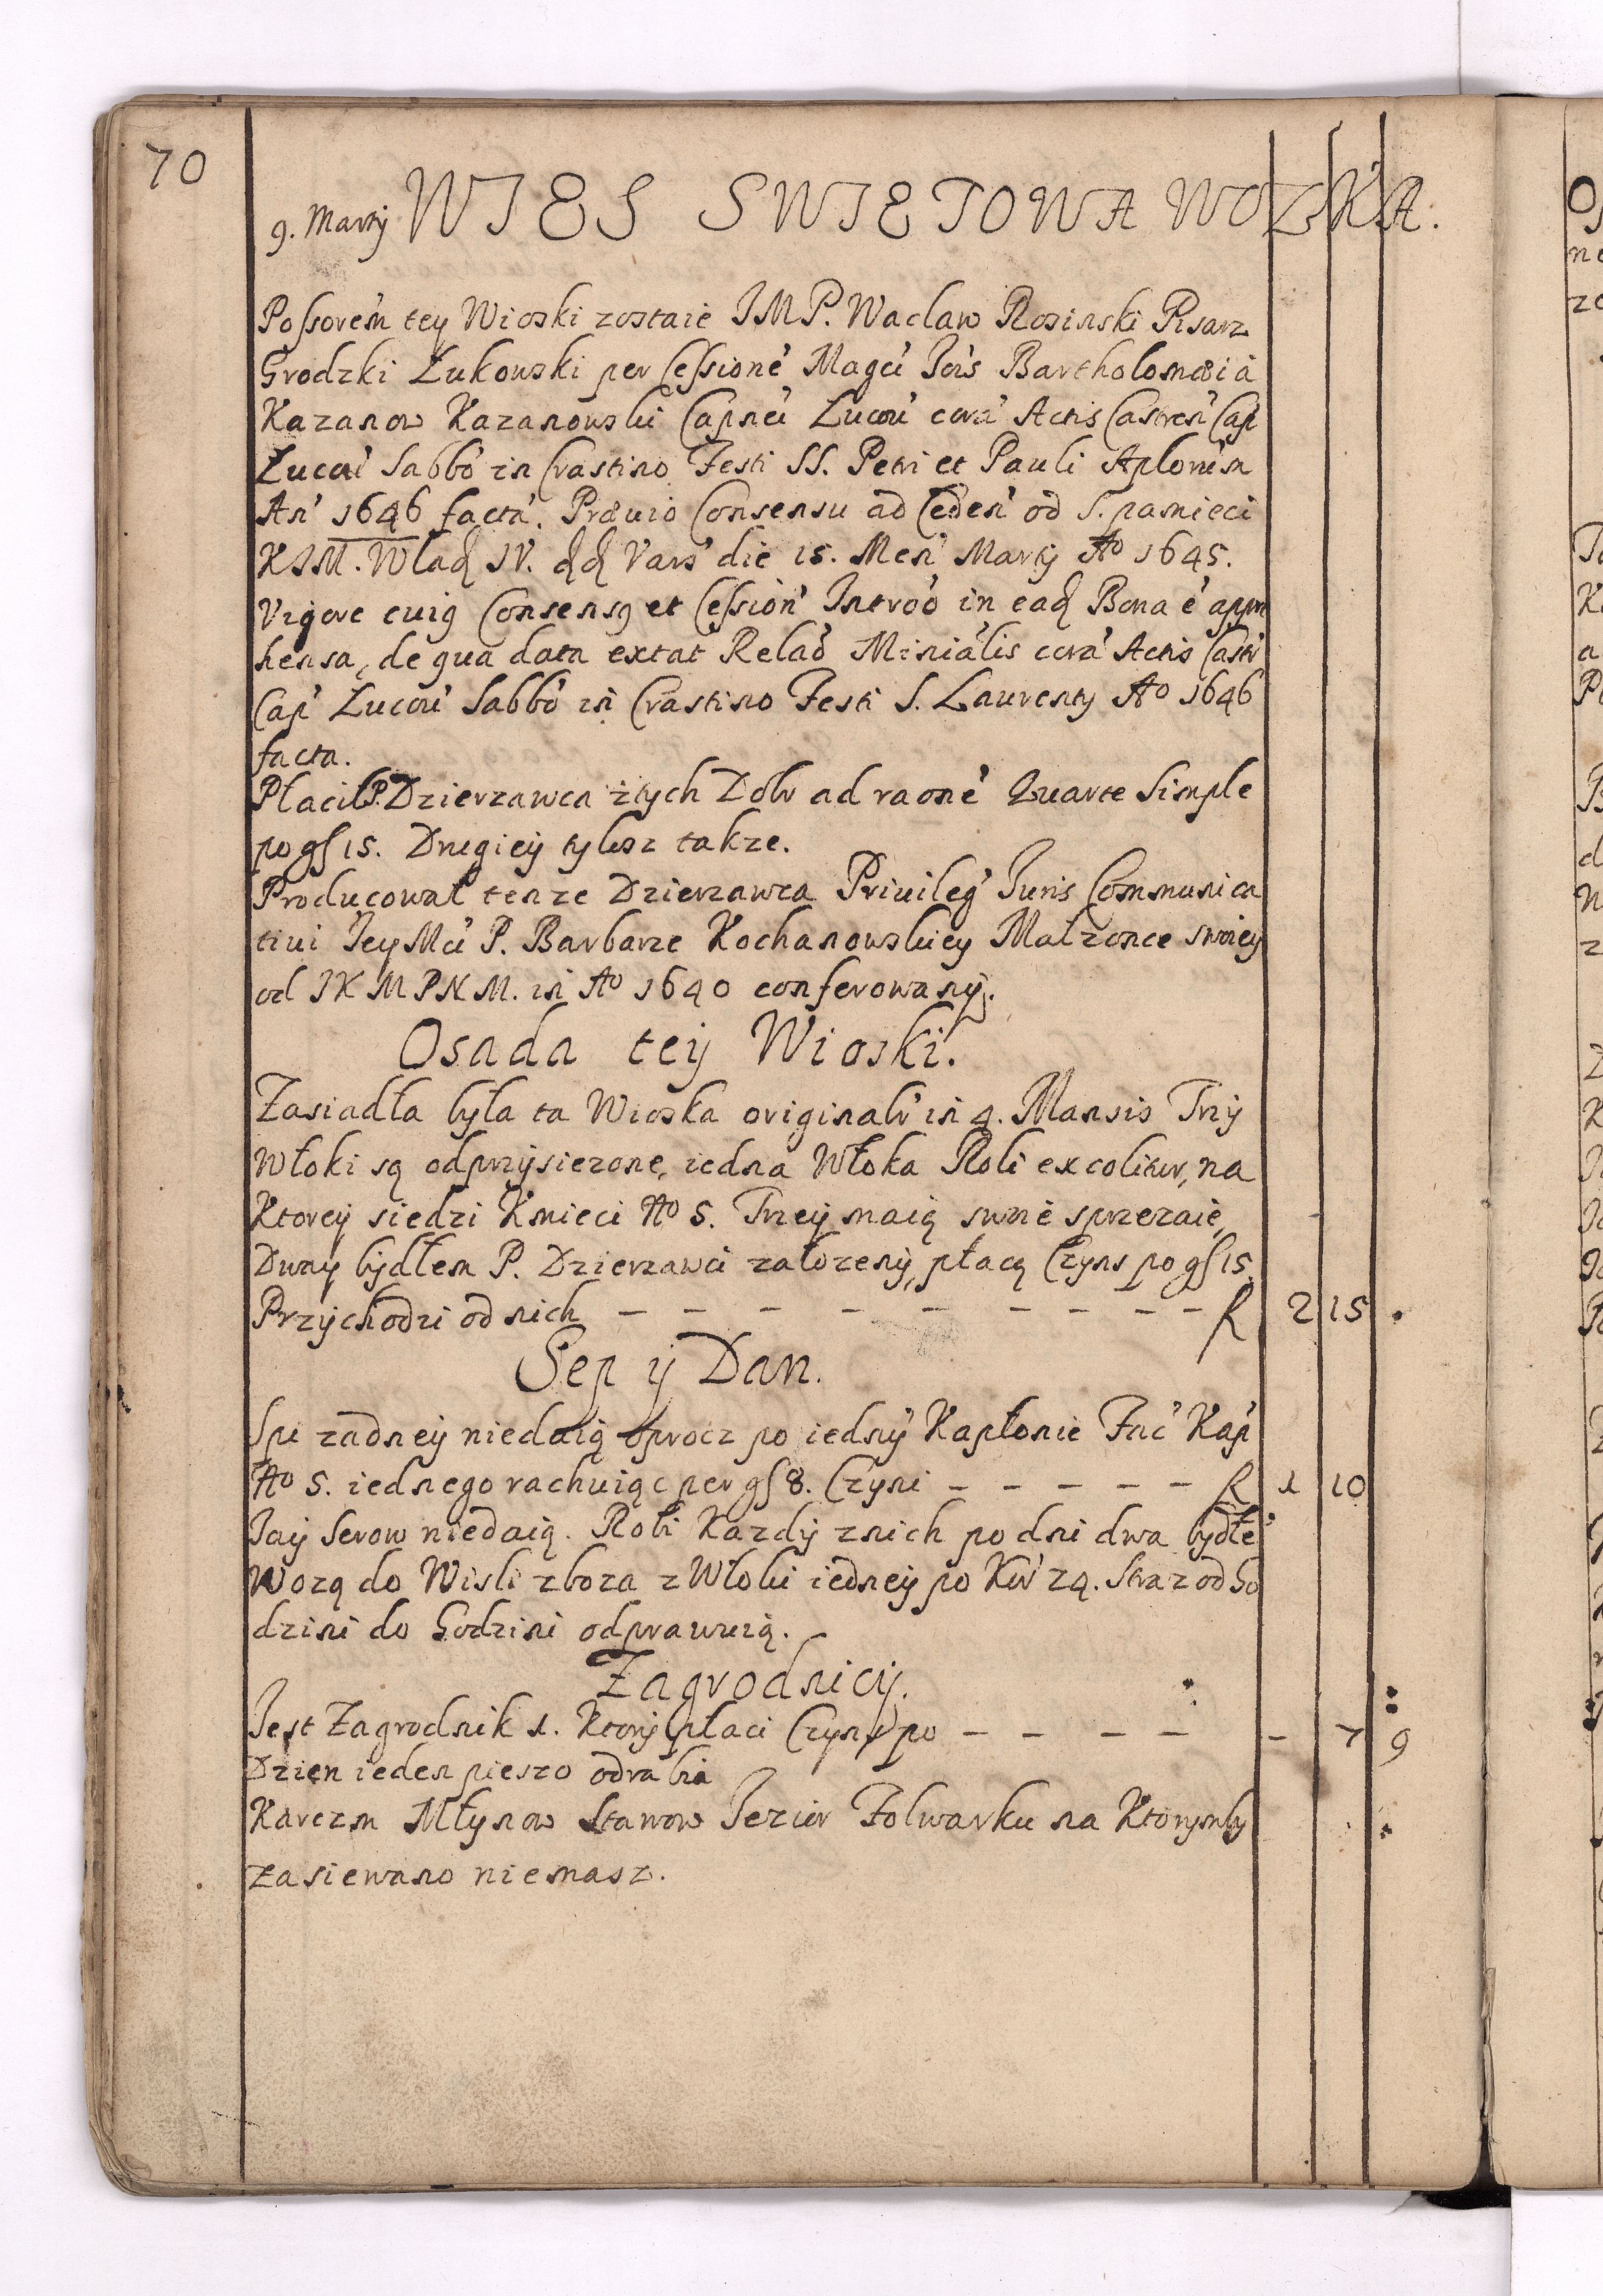 70
9. Martij WIES SWIETOWA WOLKA.
Possorem tey Wioski zostaie JMP. Waclaw Rosinski Pisarz
Grodzki Lukowski per Cessione Magci Joñis Bartholomæi à
Kazanow Kazanowski Capnei Lucou corã Actis Castren Cap
Lucou Sabbõ in Crastino Festi SS. Petri et Pauli Aplorum
An 1646 facta. Præuio Consensu ad Ceden od S. pamieci
KJM. Wlad IV. dd Vars die 15. Men Martij Aº 1645.
Vigore cuig Consensg et Cession Introõ in ead Bona é appre
hensa, de qua data extat Relaõ Miniãlis corã Actis Castr
Cap Lucou Sabbõ in Crastino Festi S. Laurentij Aº 1646
facta.
Placil P. Dzierzawca z tych Dobr ad raone Quarte Simple
po gs 15. Drugiey tylosz takze.
Producowal tenze Dzierzawca Priuileg Juris Communica
tiui Jey Mci P. Barbarze Kochanowskiey Malzonce swoiey
od JKMPNM. in Aº 1640 conferowany.
Osada tey Wioski.
Zasiadła była ta Wioska originalr in 4. Mansis Trzy
Włoki są odprzysiezone, iedna Włoka Roli excolitur, na
Ktorey siedzi Kmieci Nº 5. Trzey maią swoie sprzezaie,
Dway bydłem P. Dzierzawci załozeny, płacą Czyns po gs 15.
Przychodzi od nich - - - - - - - - - - R 2 15 .
Sep y Dan.
Spu zadney niedaią oprocz po iedny Kapłonie Fač Kap
Nº 5. iednego rachuiąc per gs 8. Czyni - - - - - R 1 10
Jay Serow niedaią. Robi Kazdy znich po dni dwa bydłe
Wozą do Wisli zboza z Włoki iedney po Kor 24. Straz od Go
dzini do Godzini odprawuią.
Zagrodnicy.
Jest Zagrodnik 1. Ktory płaci Czynsz po - - - - - 7 9
Dzien ieden pieszo odrabia
Karczm Młynow Stawow Jezior Folwarku na Ktorymby
zasiewano niemasz.